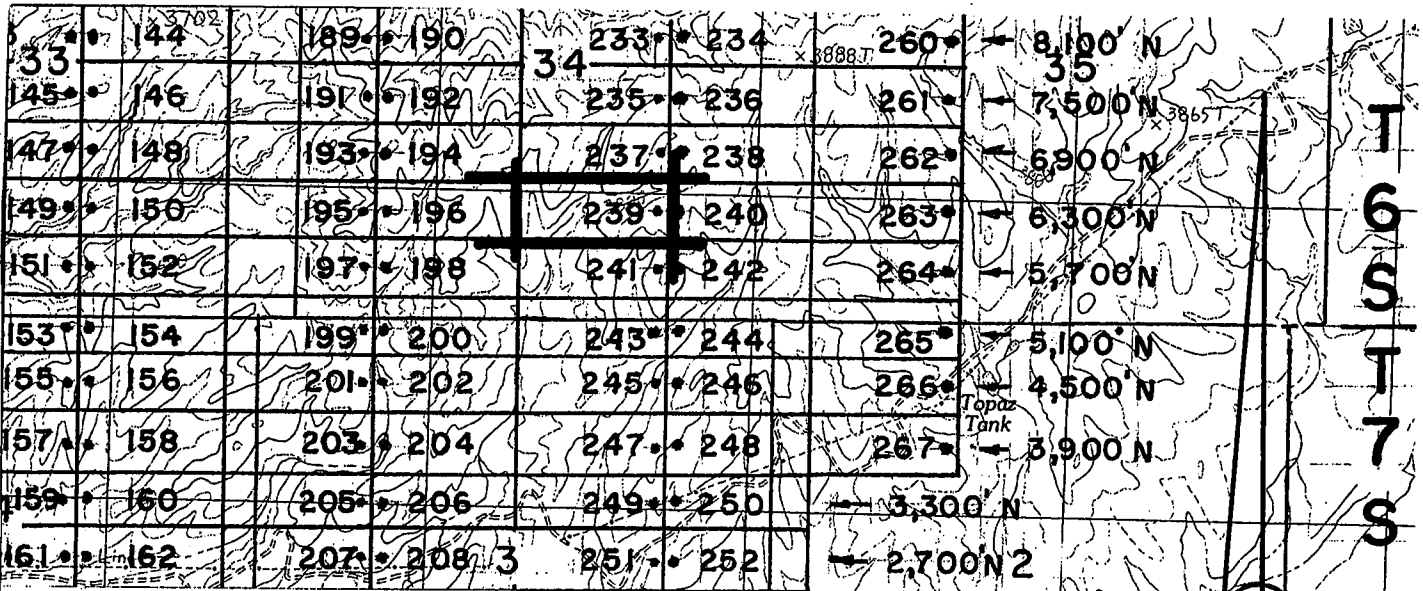 × 3702
144 189 190 233 234 260 ← 8,100' N
33 34 × 3888T 35
145 146 191 192 235 236 261 ← 7,500'N
× 3865T
T
147 148 193 194 237 238 262 ← 6,900'N
149 150 195 196 239 240 263 ← 6,300'N
6
151 152 197 198 241 242 264 ← 5,700'N
S
153 154 199 200 243 244 265 ← 5,100'N
155 156 201 202 245 246 266 ← 4,500'N
T
Topaz
Tank
157 158 203 204 247 248 267 ← 3,900'N
7
159 160 205 206 249 250 ← 3,300'N
S
161 162 207 208 3 251 252 ← 2,700'N 2